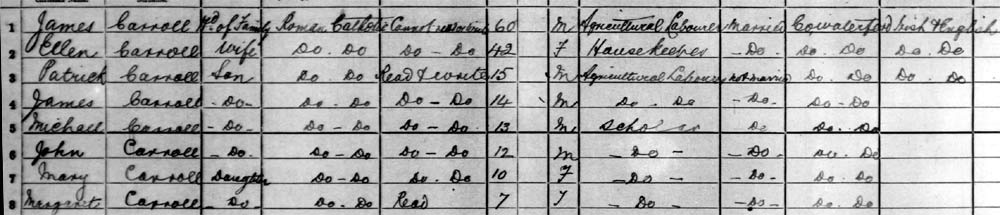 1 James Carroll Hd of Family Roman Catholic Cannot read & write 60 M Agricultural Labourer Married Co Waterford Irish & English
2 Ellen Carroll Wife Do. Do Do - Do 42 F House Keeper - Do. Do. Do Do Do
3 Patrick Carroll Son Do Do Read & write 15 M Agricultural Labourer not married Do. Do Do. Do
4 James Carroll - Do - Do. Do Do - Do 14 M Do. Do - Do - Do - Do
5 Michael Carroll - Do - Do - Do Do - Do 13 M Scholar Do Do. Do
6 John Carroll - Do. Do - Do Do - Do 12 M - Do - - Do - Do. Do
7 Mary Carroll Daughter Do - Do Do. Do 10 F - Do - - Do - Do. Do
8 Margaret Carroll - Do - Do. Do Read 7 F - Do - - Do - Do. Do